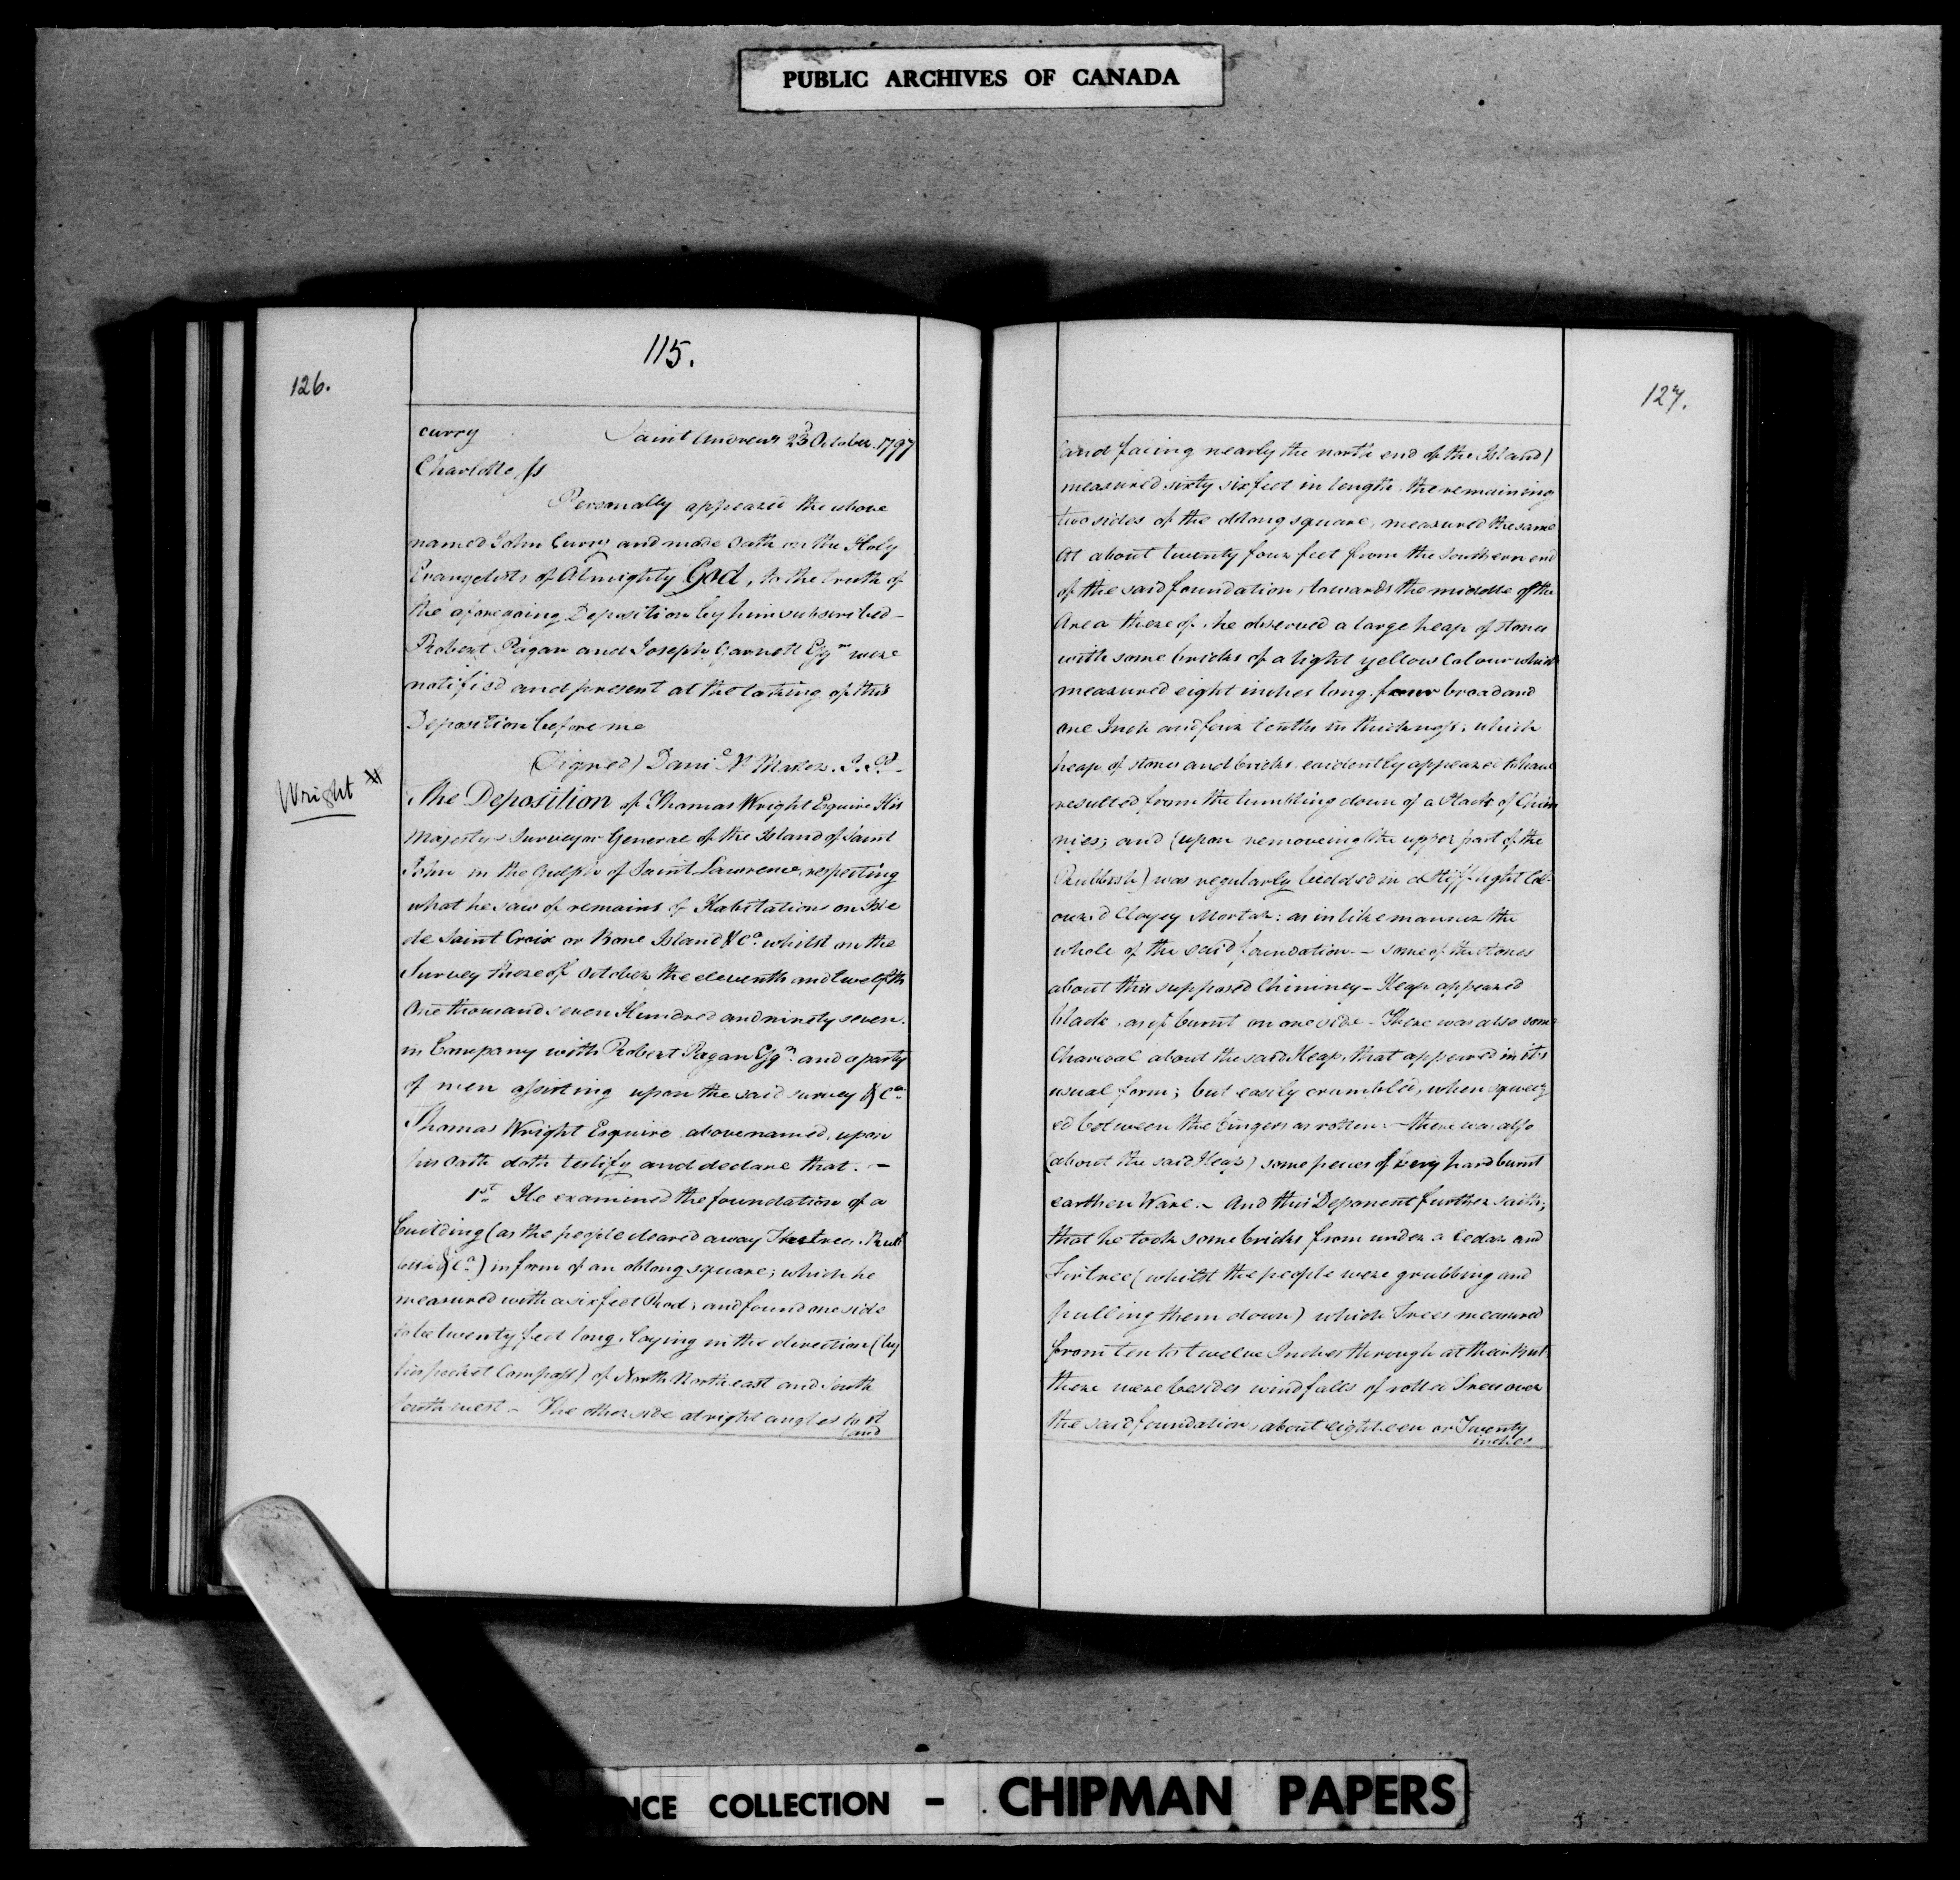 PUBLIC ARCHIVES OF CANADA
126.
115.
curry Saint Andrews 23d October 1797
Charlotte ss
Personally appeared the above
named John Curry and made Oath on the Holy
Evangelists of Almighty God, to the truth of
the aforegoing Deposition by him subscribed -
Robert Pagan and Joseph Garnett Esqrs were
notified and present at the taking of this
Deposition before me
(Signed) Danl Mc Master. J. P.
Wright
The Deposition of Thomas Wright Esquire His
Majesty's Surveyor General of the Island of Saint
John in the Gulph of Saint Lawrence, respecting
what he saw of remains of Habitations on Isle
de Saint Croix or Bone Island &ca whilst on the
Survey thereof October the eleventh and twelfth
One thousand seven Hundred and ninety seven.
in Company with Robert Pagan Esqr and a party
of men assisting upon the said survey &ca
Thomas Wright Esquire abovenamed, upon
his oath doth testify and declare that. -
1st He examined the foundation of a
building (as the people cleared away the trees. Rub
bish &ca) in form of an oblong square; which he
measured with a six feet Rod; and found one side
to be twenty feet long, laying in the direction (by
his pocket Compass) of North North east and South
South west - The other side at right angles to it
(and
127.
(and facing nearly the north end of the Island)
measured sixty six feet in length. the remaining
two sides of the oblong square, measured the same
At about twenty four feet from the southern end
of the said foundation, towards the middle of the
Area thereof, he observed a large heap of stones
with some bricks of a light yellow Colour which
measured eight inches long, four broad and
one Inch and four tenths in thickness; which
heap of stones and bricks, evidently appeared to have
resulted from the tumbling down of a Stack of Chim
nies; and (upon removeing the upper part of the
Rubbish) was regularly bedded in a stiff light Col-
oured Clayey Mortar: as in like manner the
whole of the said foundation. - some of the stones
about this supposed Chimney-Heap appeared
black, as if burnt on one side - There was also some
Charcoal about the said Heap, that appeared in its
usual form; but easily crumbled, when squeez
ed between the fingers as rotten: - there was also
(about the said Heap) some peices of very hard burnt
earthen Ware. - And this Deponent further saith;
that he took some bricks from under a Cedar and
Fir tree (whilst the people were grubbing and
pulling them down) which Trees measured
from ten to twelve Inches through at their But
there were besides windfalls of rotted Trees over
the said foundation, about eighteen or Twenty
inches
NCE COLLECTION - CHIPMAN PAPERS